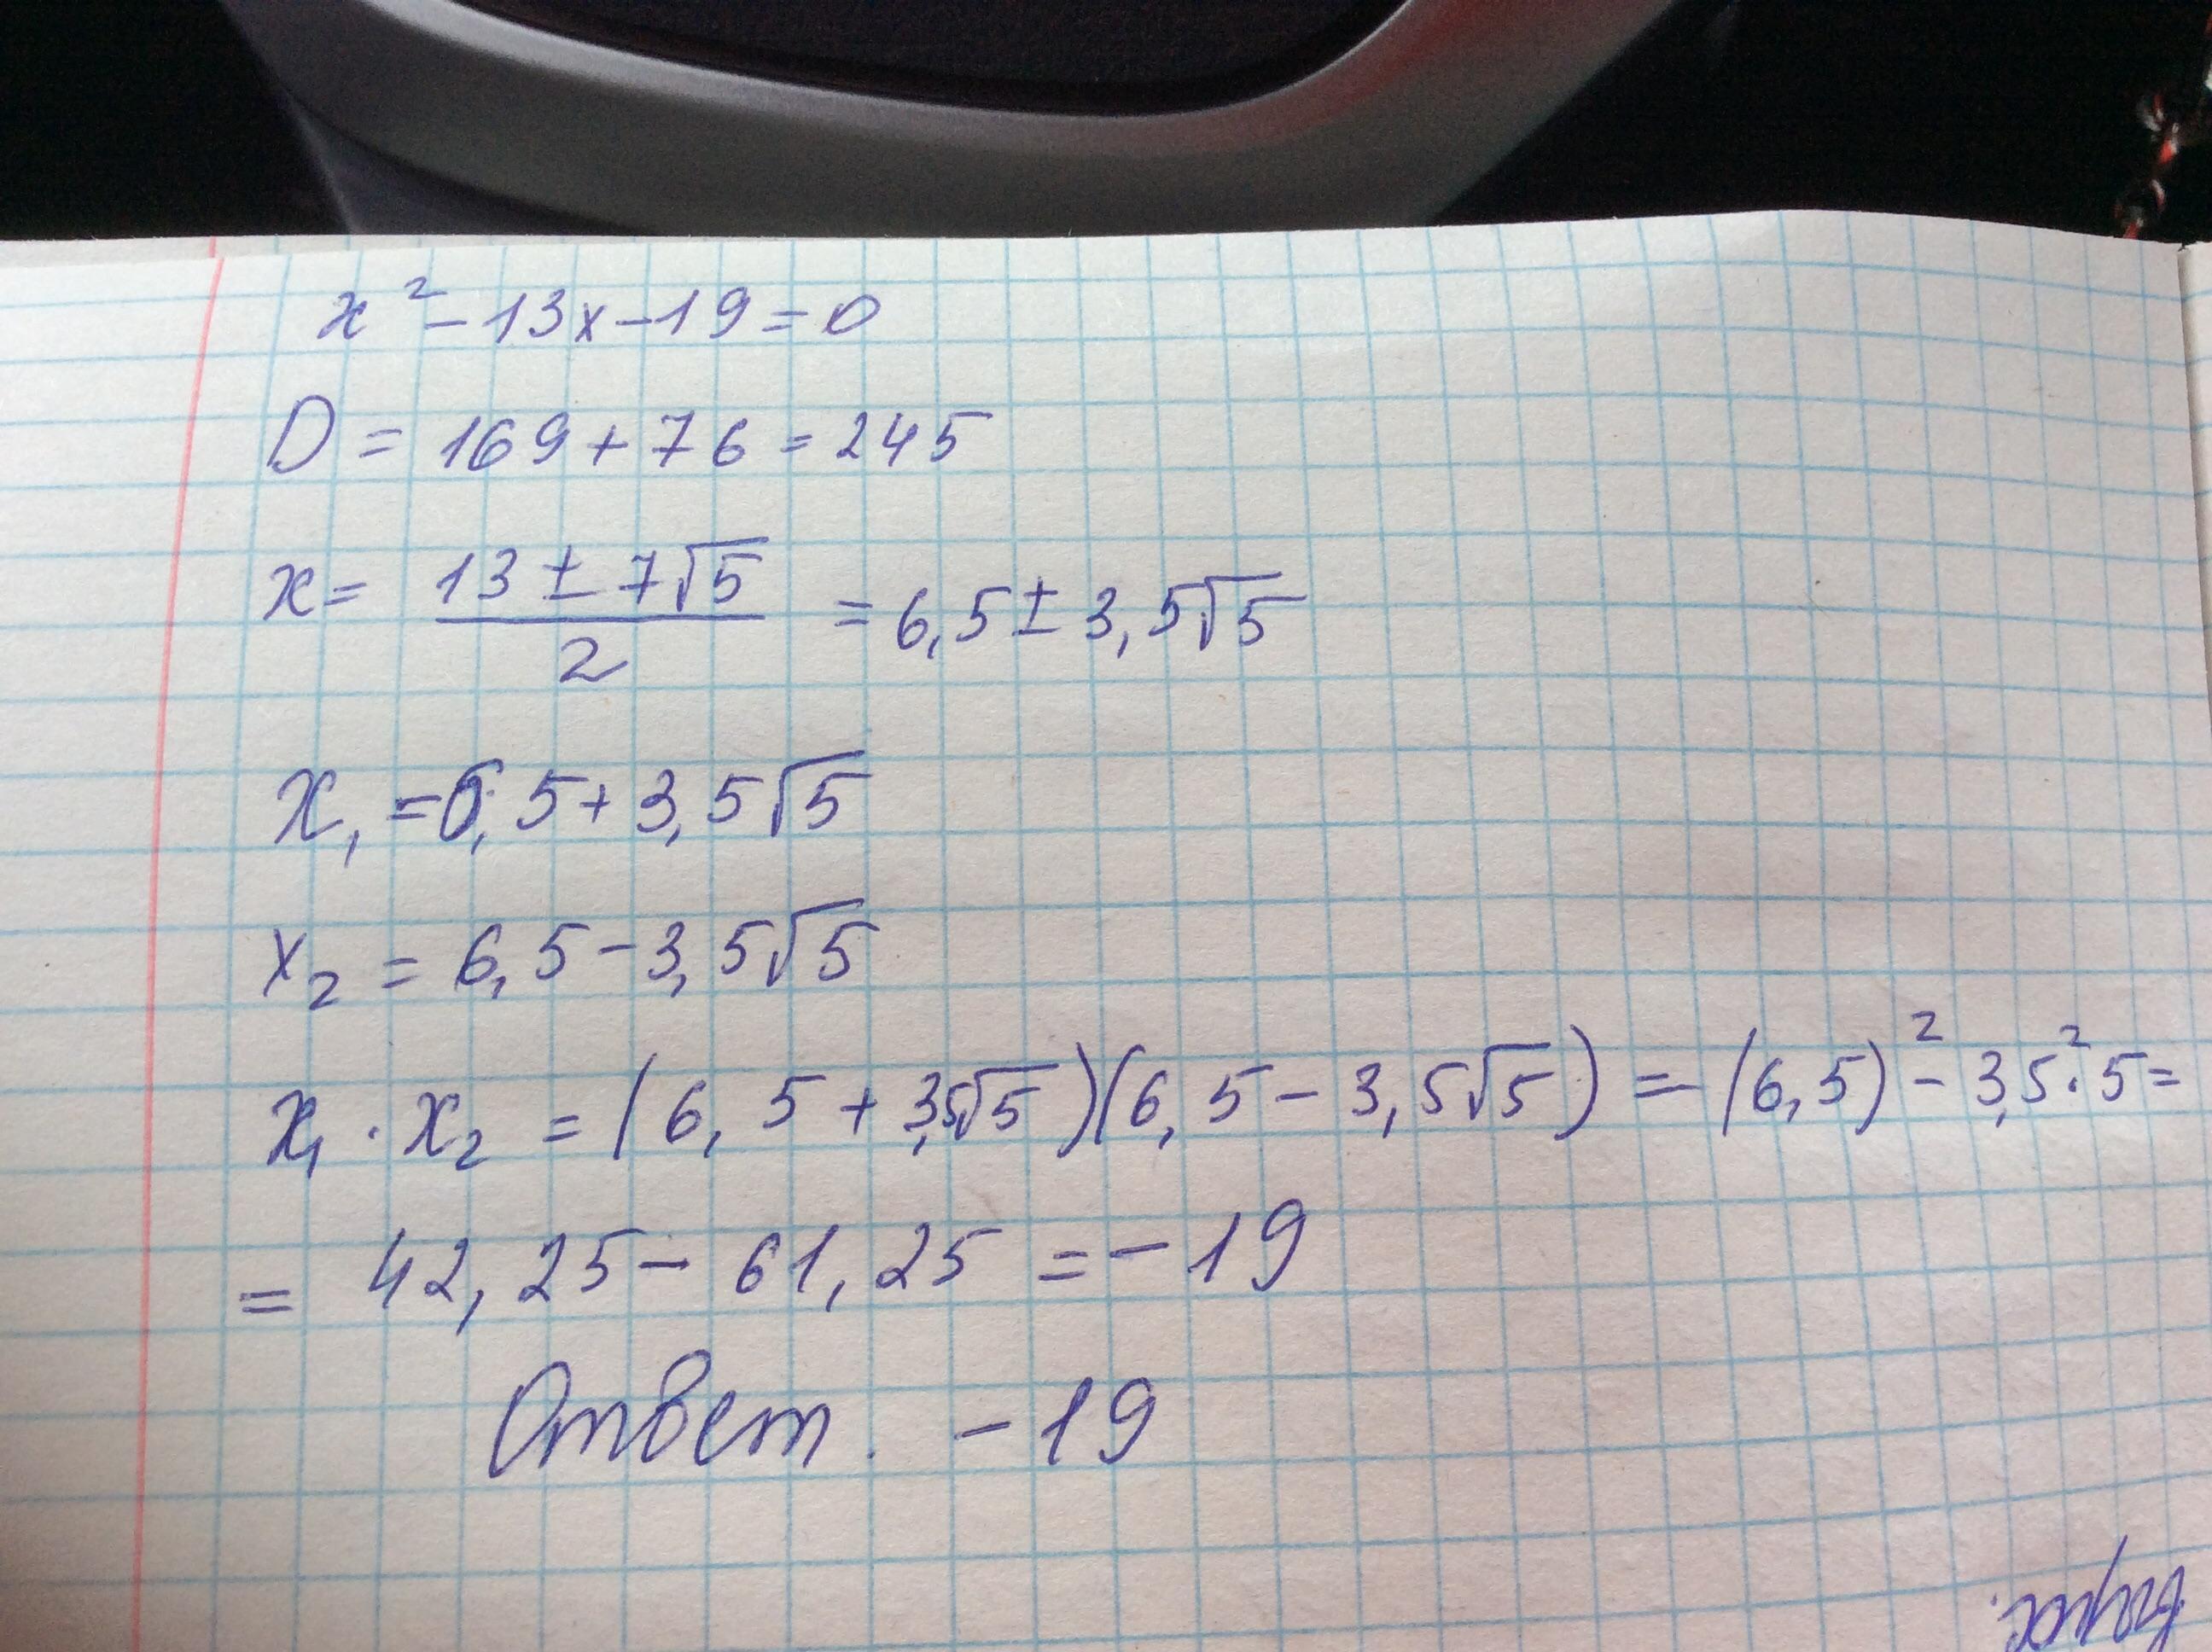 x² - 13x - 19 = 0
D = 169 + 76 = 245
x = (13 ± 7√5)/2 = 6,5 ± 3,5√5
x₁ = 6,5 + 3,5√5
x₂ = 6,5 - 3,5√5
x₁ · x₂ = (6,5 + 3,5√5)(6,5 - 3,5√5) = (6,5)² - 3,5² · 5 =
= 42,25 - 61,25 = -19
Ответ. -19